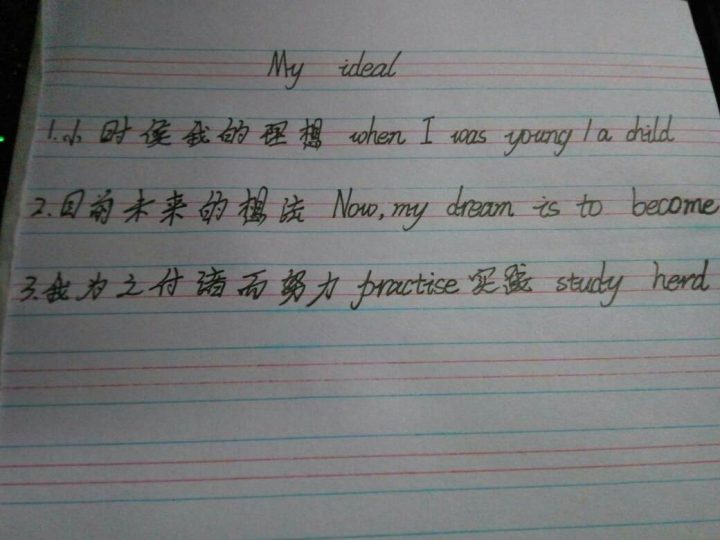 My ideal
1.小时侯我的理想 when I was young / a child
2.目前未来的想法 Now, my dream is to become
3.我为之付诸而努力 practise实践 study herd